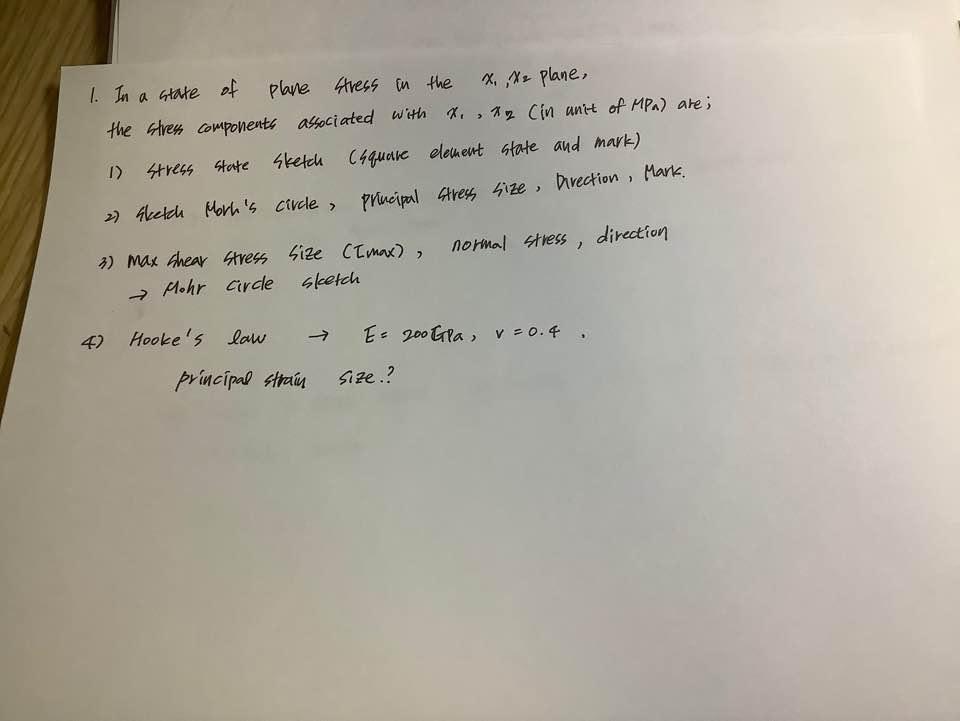 1. In a state of plane stress in the x₁, x₂ plane,
the stress components associated with x₁, x₂ (in unit of MPa) are;
1) stress state sketch (square element state and mark)
2) sketch Morh's circle, principal stress size, Direction, Mark.
3) max shear stress size (τmax), normal stress, direction
→ Mohr circle sketch
4) Hooke's law → E= 200GPa, v = 0.4 .
principal strain size.?